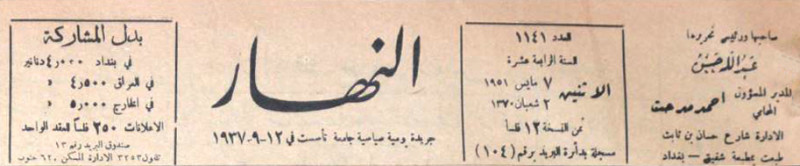 صاحبها ورئيس تحريرها
عبد الله حسن
المدير المسؤول
المحامي
احمد مدحت
الادارة شارع حسان بن ثابت
طبعت بمطبعة شفيق — بغداد
العدد ١١٤١
السنة الرابعة عشرة
الاثنين
٧ مايس ١٩٥١
٢ شعبان ١٣٧٠
ثمن النسخة ١٢ فلساً
مسجلة بدأرة البريد برقم (١٠٤)
النهار
جريدة يومية سياسية جامعة تأسست في ١٢-٩-١٩٣٧
بدل المشاركة
في بغداد ٤٫٠٠٠ دنانير
في العراق ٤٫٥٠٠ »
في الخارج ٥٫٠٠٠ »
الاعلانات ٢٥٠ فلساً للعقد الواحد
صندوق البريد رقم ١٣
تلفون ٣٢٥٣ الادارة المسكن ٦٢٠ جنوب